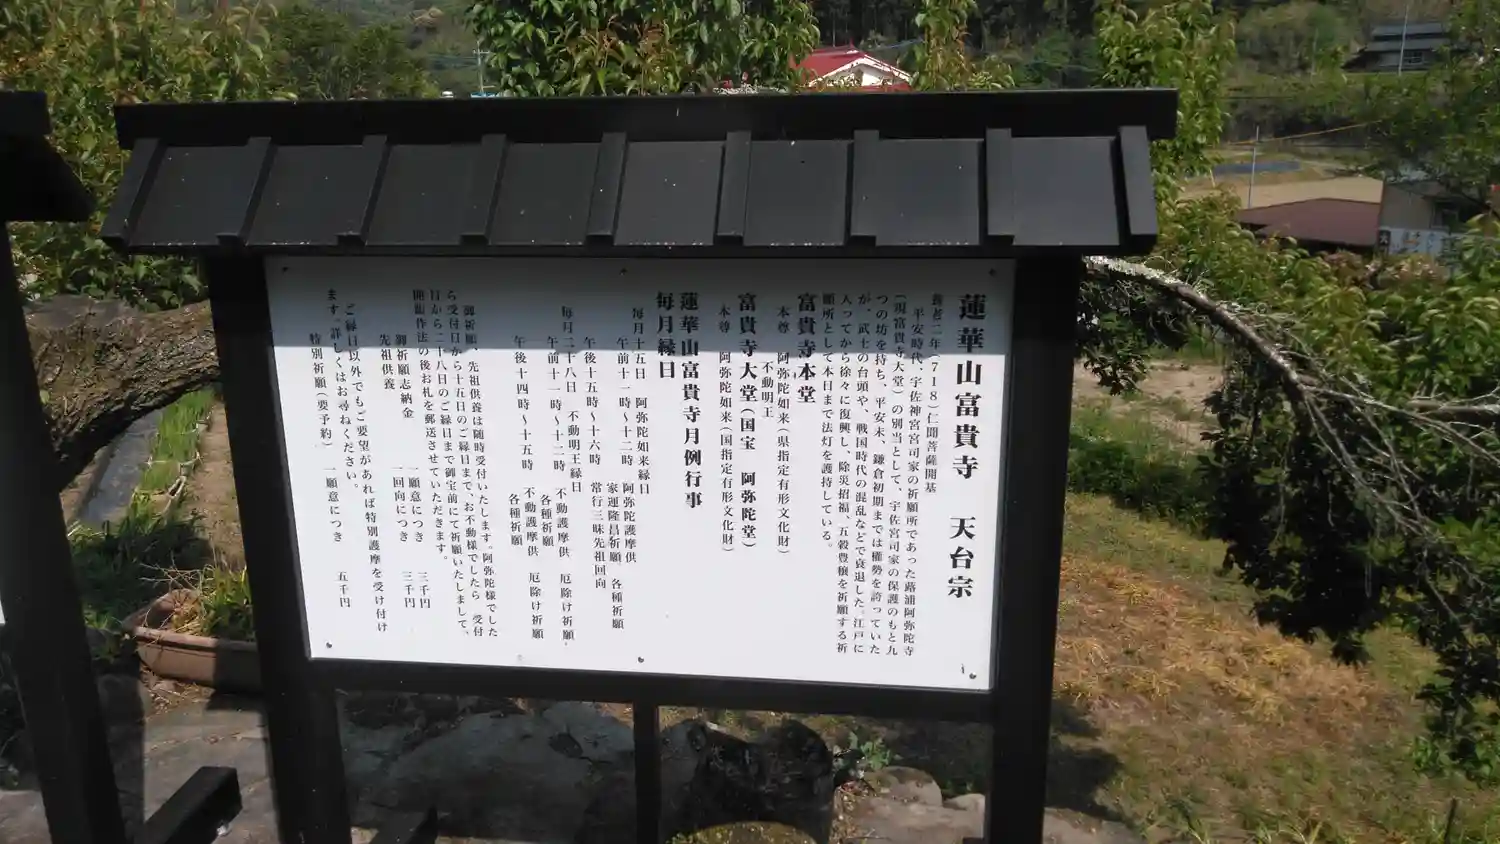 蓮華山富貴寺 天台宗
養老二年(718)仁聞菩薩開基
平安時代、宇佐神宮宮司家の祈願所であった蕗浦阿弥陀寺
(現富貴寺大堂)の別当として、宇佐宮司家の保護のもと九
つの坊を持ち、平安末、鎌倉初期までは権勢を誇っていた
が、武士の台頭や、戦国時代の混乱などで衰退した。江戸に
入ってから徐々に復興し、除災招福、五穀豊穣を祈願する祈
願所として本日まで法灯を護持している。
富貴寺本堂
本尊 阿弥陀如来(県指定有形文化財)
不動明王
富貴寺大堂(国宝 阿弥陀堂)
本尊 阿弥陀如来(国指定有形文化財)
蓮華山富貴寺月例行事
毎月縁日
毎月十五日 阿弥陀如来縁日
午前十一時～十二時 阿弥陀護摩供
家運隆昌祈願、各種祈願
午後十五時～十六時 常行三昧先祖回向
毎月二十八日 不動明王縁日
午前十一時～十二時 不動護摩供 厄除け祈願、
各種祈願
午後十四時～十五時 不動護摩供 厄除け祈願
各種祈願
御祈願、先祖供養は随時受付いたします。阿弥陀様でした
ら受付日から十五日のご縁日まで、お不動様でしたら 受付
日から二十八日のご縁日まで御宝前にて祈願いたしまして、
開眼作法の後お札を郵送させていただきます。
御祈願志納金 一願意につき 三千円
先祖供養 一回向につき 三千円
ご縁日以外でもご要望があれば特別護摩を受け付け
ます。詳しくはお尋ねください。
特別祈願(要予約) 一願意につき 五千円